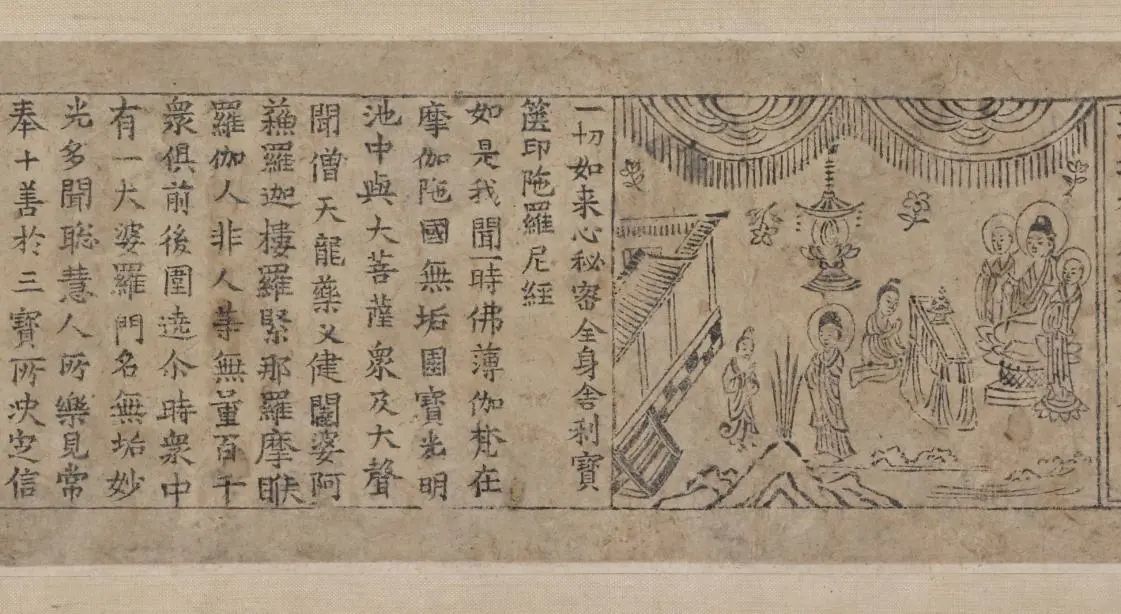 一切如来心秘密全身舍利寶
篋印陁羅尼經
如是我聞一時佛薄伽梵在
摩伽陁國無垢園寶光明
池中與大菩薩衆及大聲
聞僧天龍藥叉健闥婆阿
蘓羅迦樓羅緊那羅摩睺
羅伽人非人等無量百千
衆俱前後圍遶尒時衆中
有一大婆羅門名無垢妙
光多聞聡慧人所樂見常
奉十善於三寶所决定信